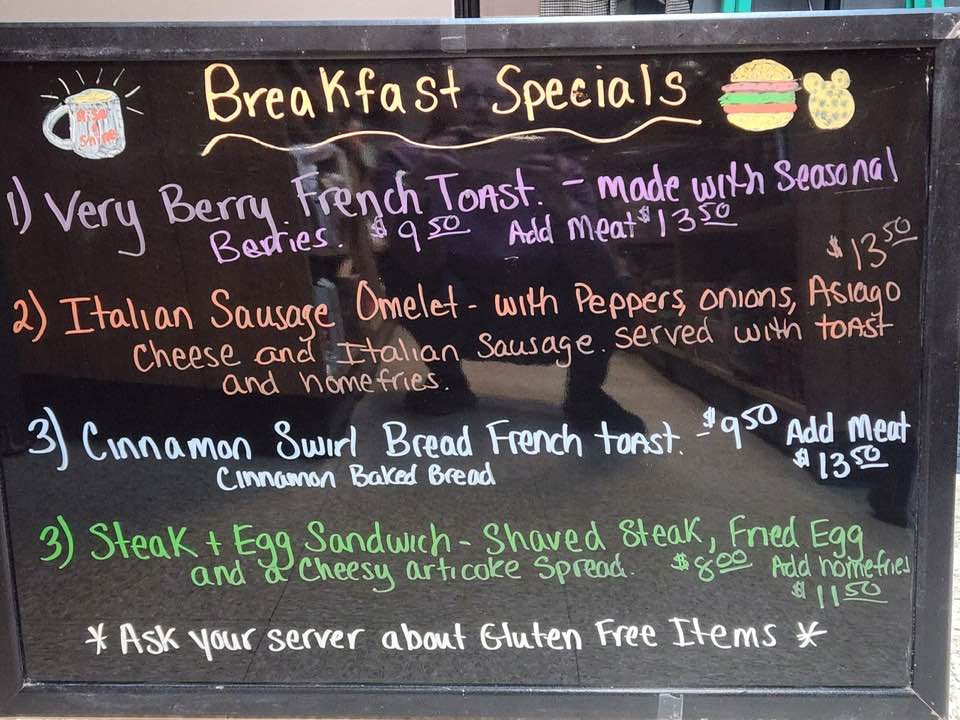 Breakfast Specials
Rise & Shine
1) Very Berry French Toast. - made with Seasonal
Berries. $9.50 Add Meat $13.50
$13.50
2) Italian Sausage Omelet - with Peppers, onions, Asiago
Cheese and Italian Sausage. Served with toast
and homefries.
3) Cinnamon Swirl Bread French toast. - $9.50 Add Meat
Cinnamon Baked Bread $13.50
3) Steak + Egg Sandwich - Shaved Steak, Fried Egg
and a cheesy articoke Spread. $8.00 Add homefries
$11.50
* Ask your server about Gluten Free Items *